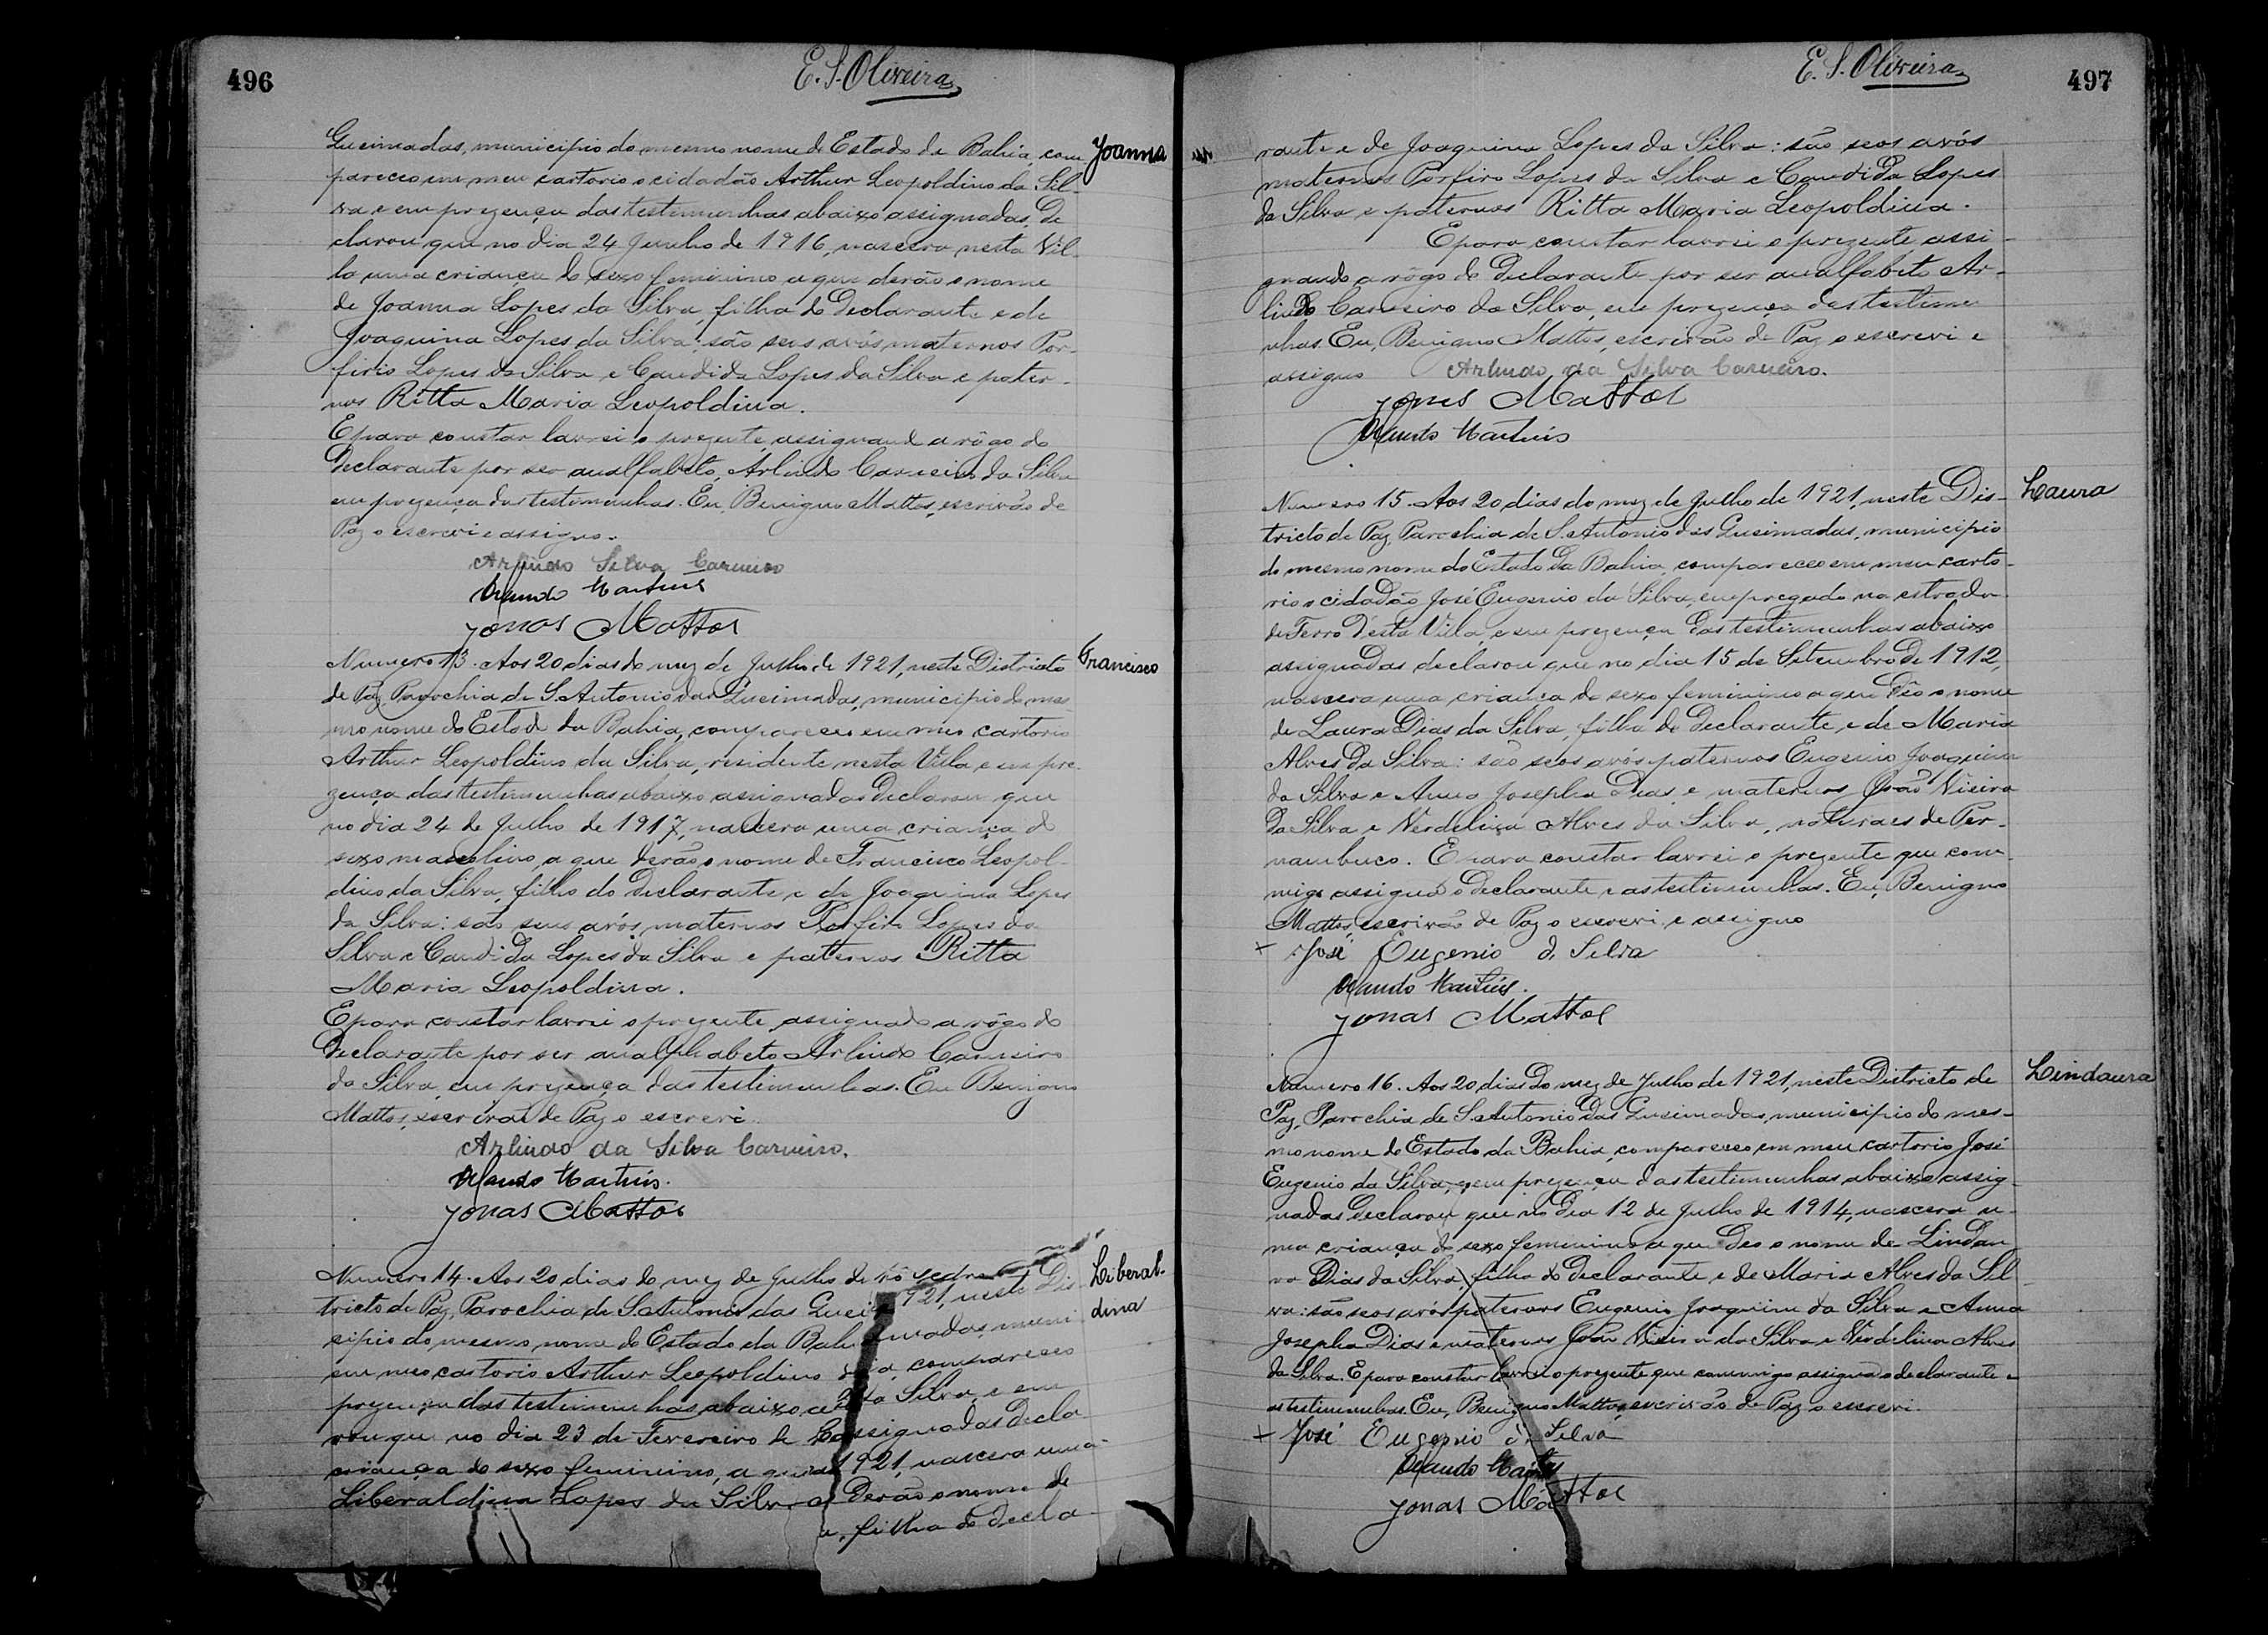 496
E. S. Oliveira
Queimadas, municipio do mesmo nome do Estado da Bahia, com
Joanna
pareceo em meu cartorio o cidadão Arthur Leopoldino da Sil-
va e em prezença das testemunhas abaixo assignadas, de
clarou que no dia 24 Junho de 1916, nascera nesta Vil-
la uma criança do sexo feminino a que derão o nome
de Joanna Lopes da Silva, filha do Declarante e de
Joaquina Lopes da Silva: são seus avós maternos Por-
firio Lopes da Silva e Candida Lopes da Silva e pater-
nos Ritta Maria Leopoldina.
E para constar lavrei o prezente, assignand a rôgo do
Declarante por ser analfabeto, Arlindo Carneiro da Silva
em prezença das testemunhas. Eu, Benigno Mattos, escrivão de
Paz o escrevi e assigno.
Arlindo Silva Carneiro
Orlando Martins
Jonas Mattos
Numero 13. Aos 20 dias do mez de Julho de 1921, neste Districto
Francisco
de Paz, Parochia de S. Antonio das Queimadas, municipio do mes-
mo nome do Estado da Bahia, compareceo em meo cartorio
Arthur Leopoldino da Silva, residente nesta Villa e em pre-
zença das testemunhas abaixo assignadas Declarou que
no dia 24 de Julho de 1917, nascera uma criança do
sexo masculino, a que derão o nome de Francisco Leopol-
dino da Silva, filho do Declarante e de Joaquina Lopes
da Silva: são seus avós maternos Porfirio Lopes da
Silva e Candida Lopes da Silva e paternos Ritta
Maria Leopoldina.
E para constar lavrei o prezente, assignado a rôgo do
Declarante por ser analphabeto Arlindo Carneiro
da Silva, em prezença das testimunhas. Eu Benigno
Mattos, escrivão de Paz o escrevi.
Arlindo da Silva Carneiro.
Orlando Martins.
Jonas Mattos
Numero 14. Aos 20 dias do mez de Julho de 1921, neste Dis
Liberal-
dina
tricto de Paz, Parochia de S. Antonio das Queimadas, muni-
cipio do mesmo nome do Estado da Bahia, compareceo
em meo cartorio Arthur Leopoldino da Silva, e em
prezença das testimunhas abaixo assignadas Decla
rou que no dia 23 de Fevereiro de 1921, nascera uma
criança do sexo feminino, a que derão o nome de
Liberaldina Lopes da Silva, filha do decla-
497
E. S. Oliveira
rante e de Joaquina Lopes da Silva: são seos avós
maternos Porfiro Lopes da Silva e Candida Lopes
da Silva e paternos Ritta Maria Leopoldina.
E para constar lavrei o prezente, assi-
gnando a rôgo do Declarante por ser analfabeto Ar-
lindo Carneiro da Silva, em prezença das testemu
nhas. Eu, Benigno Mattos, escrivão de Paz o escrevi e
assigno
Arlindo da Silva Carneiro.
Jonas Mattos
Orlando Martins
Numero 15. Aos 20 dias do mez de Julho de 1921, neste Dis-
Laura
tricto de Paz, Parochia de S. Antonio das Queimadas, municipio
do mesmo nome do Estado da Bahia, compareceo em meu carto-
rio o cidadão José Eugenio da Silva, empregado na estrada
de Ferro d'esta Villa, e em prezença das testimunhas abaixo
assignadas declarou que no dia 15 de Setembro de 1912,
nascera uma criança do sexo feminino a que deo o nome
de Laura Dias da Silva, filha do Declarante, e de Maria
Alves da Silva: são seos avós paternos Eugenio Joaquim
da Silva e Anna Josepha Dias, e maternos João Vieira
da Silva e Verdelina Alves da Silva, naturaes de Per-
nambuco. E para constar lavrei o prezente que com-
migo assigna o Declarante e as testimunhas. Eu, Benigno
Mattos, escrivão de Paz o escrevi e assigno
+ José Eugenio da Silva
Orlando Martins.
Jonas Mattos
Numero 16. Aos 20 dias do mez de Julho de 1921, neste Districto de
Lindaura
Paz, Parochia de S. Antonio das Queimadas, municipio do mes-
mo nome do Estado da Bahia, compareceo em meu cartorio José
Eugenio da Silva, e em prezença das testimunhas abaixo assig-
nadas Declarou que no dia 12 de Julho de 1914, nascera u-
ma criança do sexo feminino a que deo o nome de Lindau
ra Dias da Silva, filha do Declarante, e de Maria Alves da Sil
va: são seos avós paternos Eugenio Joaquim da Silva e Anna
Josepha Dias e maternos João Vieira da Silva e Verdelina Alves
da Silva. E para constar lavrei o prezente que commigo assigna o declarante e
as testimunhas. Eu, Benigno Mattos, escrivão de Paz o escrevi.
+ José Eugenio da Silva
Orlando Martins
Jonas Mattos